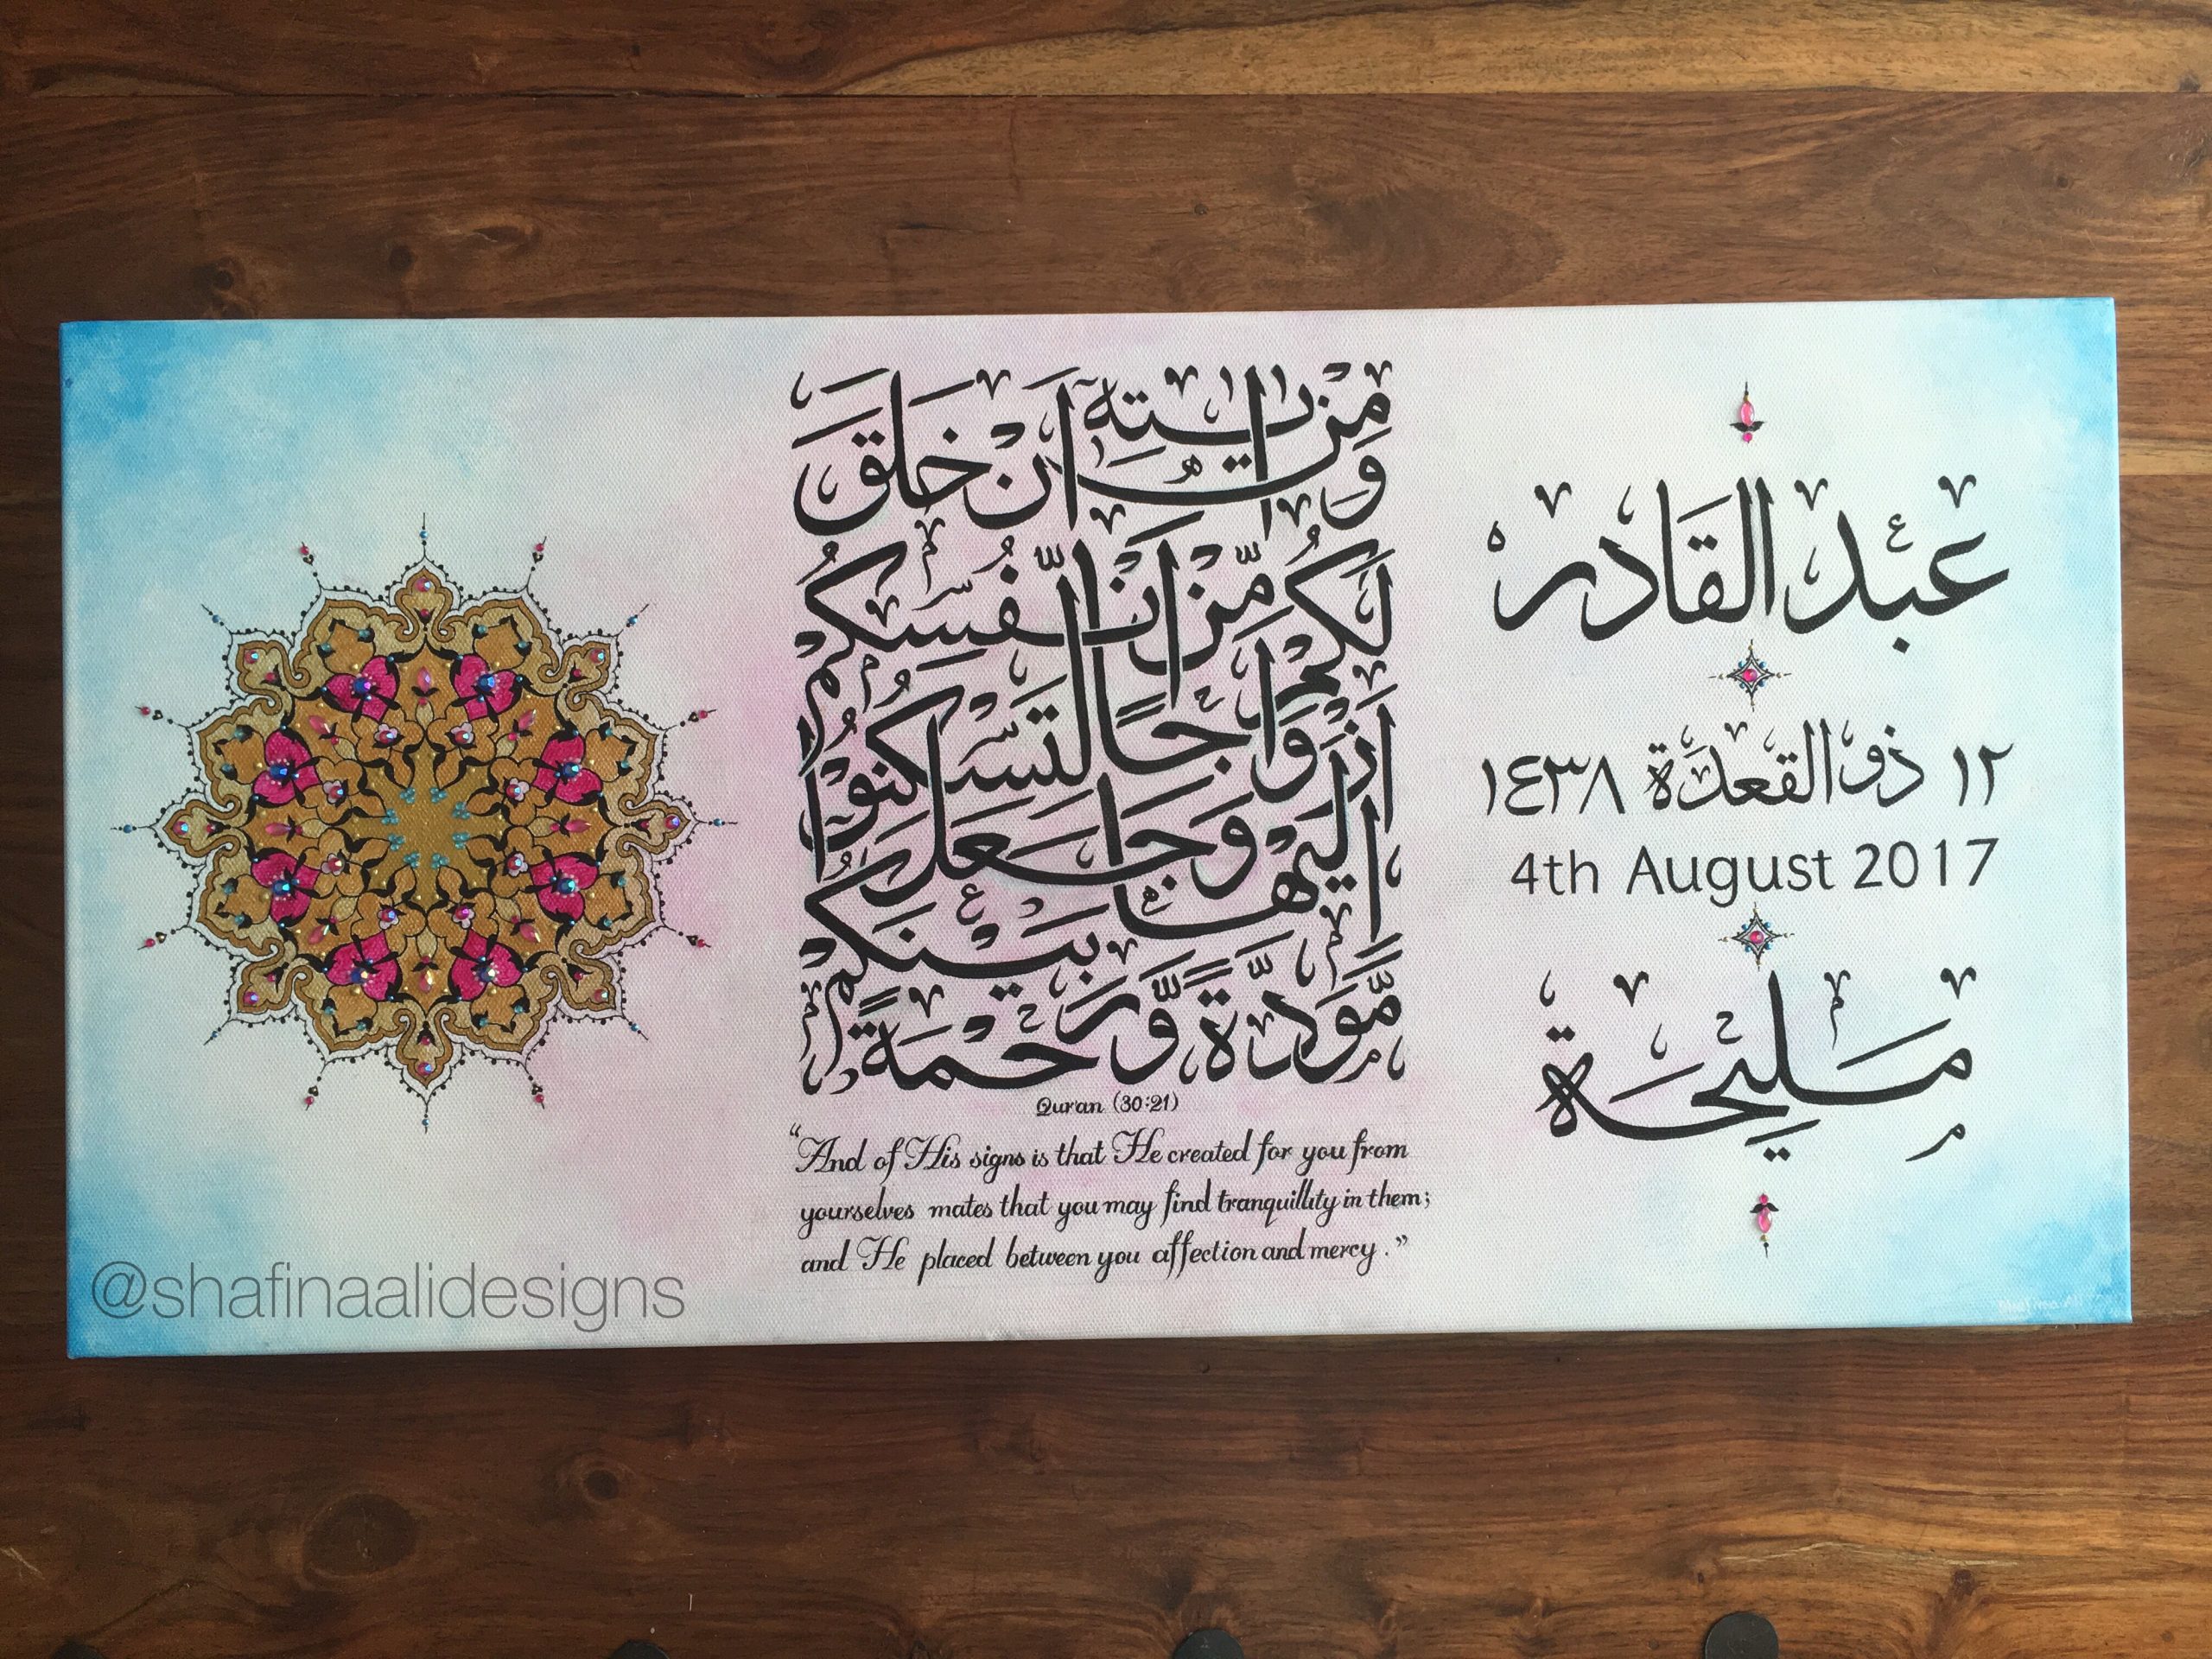 وَمِنْ اٰيٰتِهٖٓ اَنْ خَلَقَ
لَكُمْ مِّنْ اَنْفُسِكُمْ
اَزْوَاجًا لِّتَسْكُنُوْٓا
اِلَيْهَا وَجَعَلَ بَيْنَكُمْ
مَّوَدَّةً وَّرَحْمَةً
Qur'an (30:21)
"And of His signs is that He created for you from
yourselves mates that you may find tranquillity in them;
and He placed between you affection and mercy."
عَبْدُ الْقَادِر
١٢ ذو القَعدَة ١٤٣٨
4th August 2017
مَلِيْحَة
@shafinaalidesigns
Shafina Ali